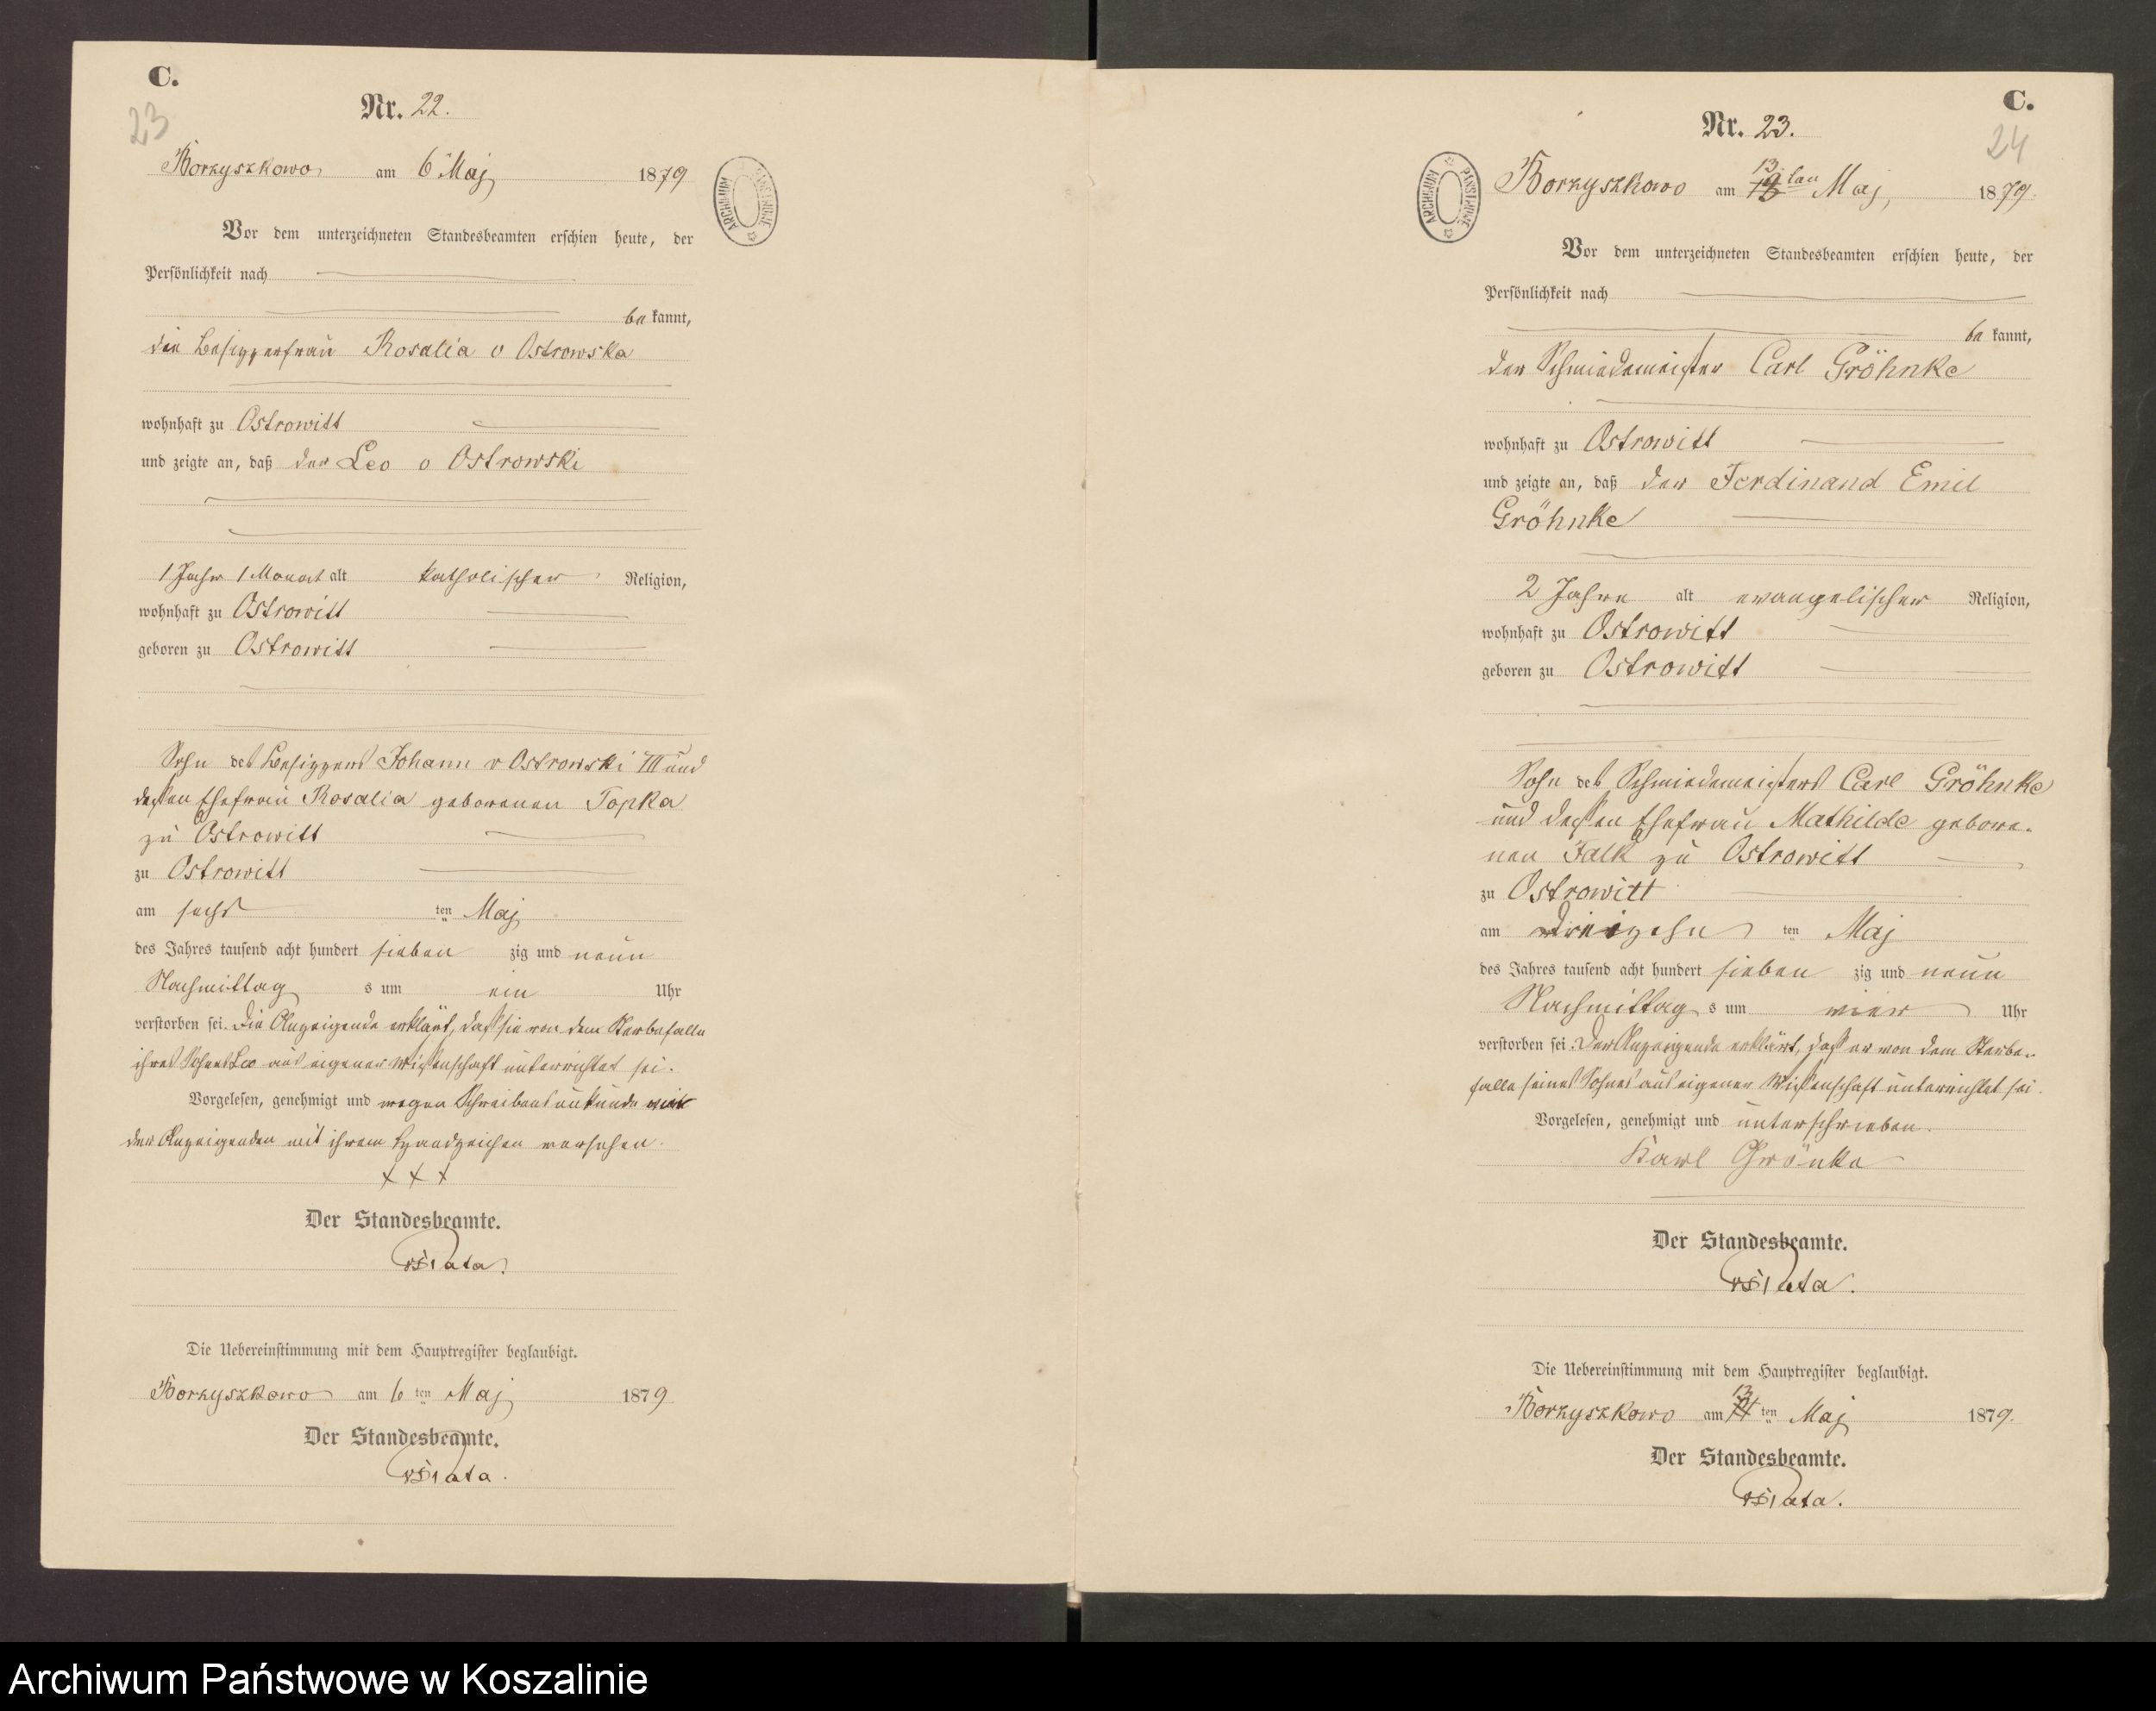 C.
23
Nr. 22.
Borzyszkowo am 6 Maj 1879
ARCHIWUM PAŃSTWOWE
Vor dem unterzeichneten Standesbeamten erschien heute, der
Persönlichkeit nach
be kannt,
die Besitzerfrau Rosalia v Ostrowska
wohnhaft zu Ostrowitt
und zeigte an, daß der Leo v Ostrowski
1 Jahr 1 Monat alt katholischer Religion,
wohnhaft zu Ostrowitt
geboren zu Ostrowitt
Sohn des Besitzers Johann v Ostrowski III und
dessen Ehefrau Rosalia geborenen Topka
zu Ostrowitt
zu Ostrowitt
am sechs ten Maj
des Jahres tausend acht hundert sieben zig und neun
Nachmittag s um ein Uhr
verstorben sei. Die Anzeigende erklärt, daß sie von dem Sterbefalle
ihres Sohnes Leo aus eigener Wissenschaft unterrichtet sei.
Vorgelesen, genehmigt und wegen Schreibensunkunde
der Anzeigenden mit ihrem Handzeichen versehen.
+ + +
Der Standesbeamte.
Die Uebereinstimmung mit dem Hauptregister beglaubigt.
Borzyszkowo am 6 ten Maj 1879
Der Standesbeamte.
C.
24
Nr. 23.
ARCHIWUM PAŃSTWOWE
Borzyszkowo am 13 ten Maj, 1879.
Vor dem unterzeichneten Standesbeamten erschien heute, der
Persönlichkeit nach
be kannt,
der Schmiedemeister Carl Gröhnke
wohnhaft zu Ostrowitt
und zeigte an, daß der Ferdinand Emil
Gröhnke
2 Jahre alt evangelischer Religion,
wohnhaft zu Ostrowitt
geboren zu Ostrowitt
Sohn des Schmiedemeisters Carl Gröhnke
und dessen Ehefrau Mathilde gebore-
nen Falk zu Ostrowitt
zu Ostrowitt
am dreizehn ten Maj
des Jahres tausend acht hundert sieben zig und neun
Nachmittag s um vier Uhr
verstorben sei. Der Anzeigende erklärt, daß er von dem Sterbe-
falle seines Sohnes aus eigener Wissenschaft unterrichtet sei.
Vorgelesen, genehmigt und unterschrieben.
Karl Grönke
Der Standesbeamte.
Die Uebereinstimmung mit dem Hauptregister beglaubigt.
Borzyszkowo am 13 ten Maj 1879.
Der Standesbeamte.
Archiwum Państwowe w Koszalinie